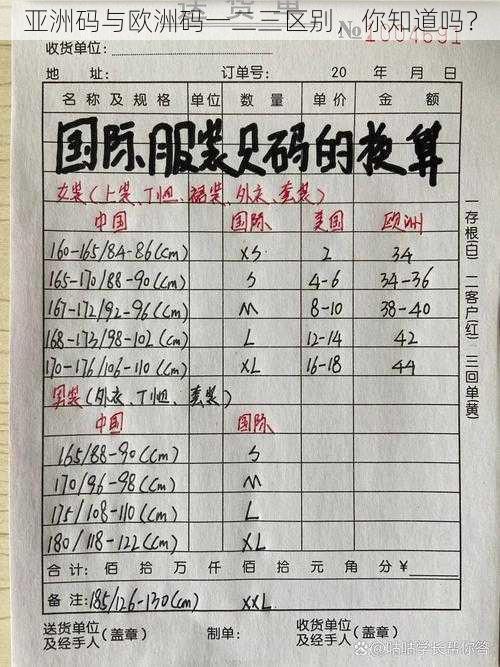 亚洲码与欧洲码一二三区别，你知道吗？
送货单
№ 1004691
收货单位：
地 址： 订单号： 20 年 月 日
名称及规格 单位 数量 单价 金额
国际服装尺码的换算
女装（上装、T恤、裙装、外衣、套装）
中国 国际 美国 欧洲
160-165/84-86(cm) XS 2 34
165-170/88-90(cm) S 4-6 34-36
167-172/92-96(cm) M 8-10 38-40
168-173/98-102(cm) L 12-14 42
170-176/106-110(cm) XL 16-18 44
男装（外衣、T恤、套装）
中国 国际
165/88-90(cm) S
170/96-98(cm) M
175/108-110(cm) L
180/118-122(cm) XL
合计： 佰 拾 万 仟 佰 拾 元 角 分 ¥
备注：185/126-130(cm) XXL
送货单位及经手人（盖章） 制单： 收货单位及经手人（盖章）
一存根(白) 二客户(红) 三回单(黄)